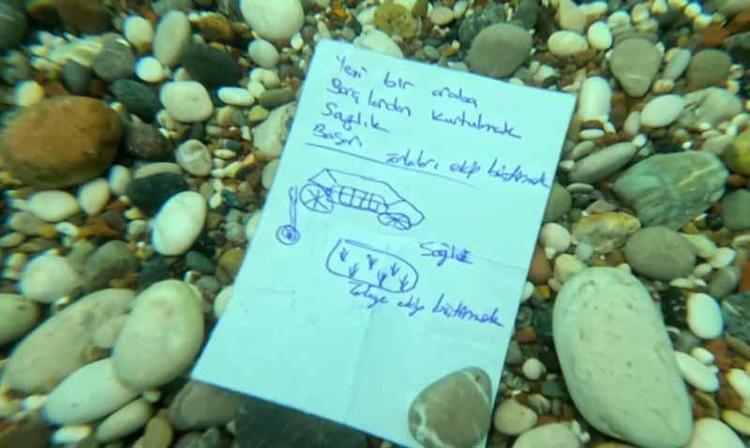 Yeni bir araba
Borçlardan kurtulmak
Sağlık
Başarı ekip biçtirmek
Sağlık
ekip biçtirmek